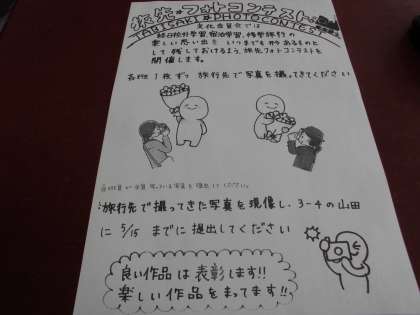 旅先・フォトコンテスト
TABISAKI PHOTO CONTEST
文化委員会では
校外学習、宿泊学習、修学旅行の
楽しい思い出を いつまでも形あるものと
して残しておけるよう、旅先フォトコンテストを
開催します。
各班 1枚ずつ 旅行先で写真を撮ってきてください
を提出してください。
旅行先で撮ってきた写真を現像し、3-4の山田
に 5/15 までに提出してください
良い作品は表彰します!!
楽しい作品をまってます!!